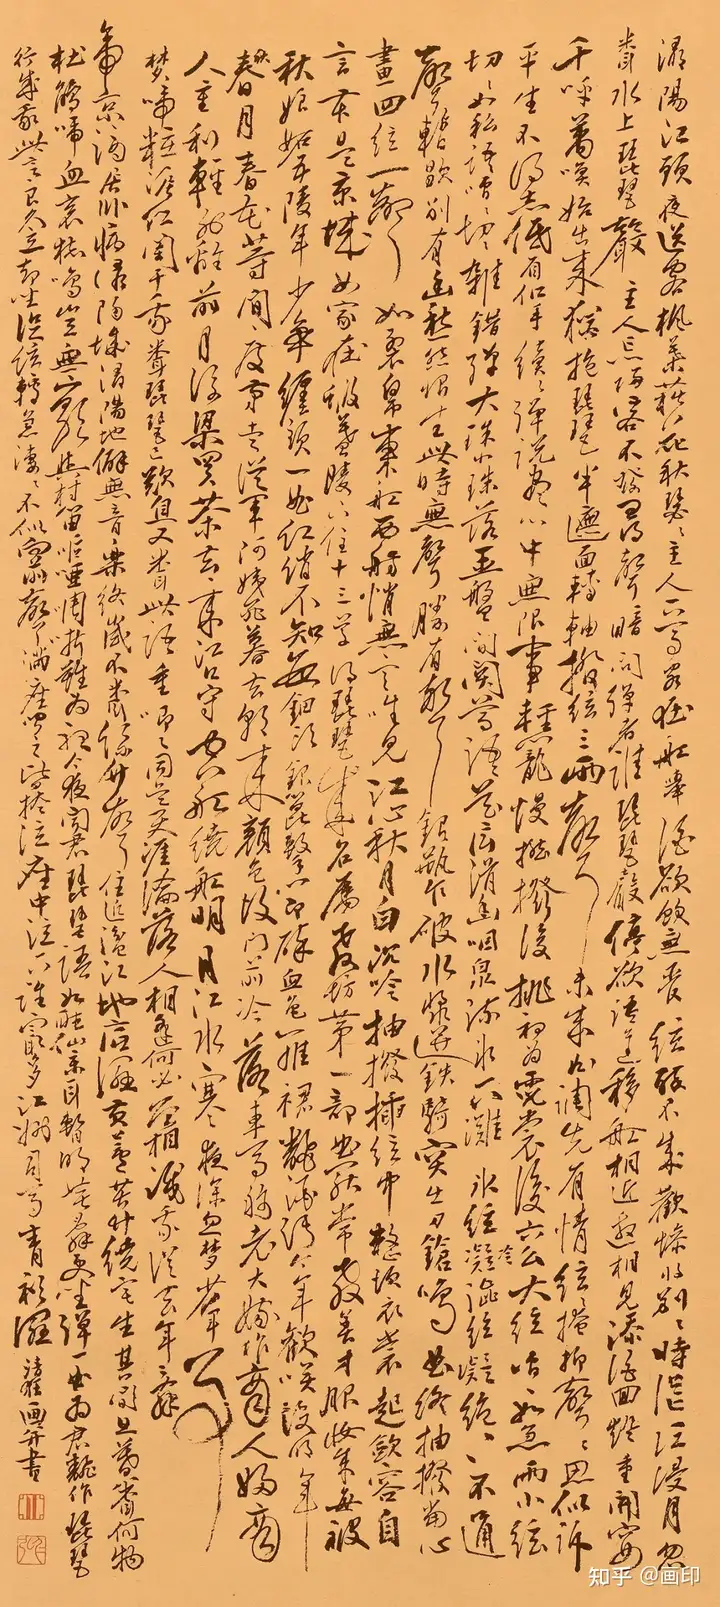 潯陽江頭夜送客楓葉荻花秋瑟〻主人下馬客在船舉酒欲飲無管絃醉不成歡慘將別〻時茫〻江浸月忽
聞水上琵琶聲主人忘歸客不發尋聲暗問彈者誰琵琶聲停欲語遲移船相近邀相見添酒回燈重開宴
千呼萬喚始出來猶抱琵琶半遮面轉軸撥絃三兩聲未成曲調先有情絃〻掩抑聲〻思似訴
平生不得志低眉信手續〻彈說盡心中無限事輕攏慢撚撥復挑初為霓裳後六幺大絃嘈〻如急雨小絃
切〻如私語嘈〻切〻雜錯彈大珠小珠落玉盤間關鶯語花底滑幽咽泉流水下灘水泉冷澀絃凝絕凝絕不通
聲暫歇別有幽愁暗恨生此時無聲勝有聲銀瓶乍破水漿迸鐵騎突出刀鎗鳴曲終抽撥當心
畫四絃一聲如裂帛東船西舫悄無言唯見江心秋月白沉吟抽撥插絃中整頓衣裳起斂容自
言本是京城女家在蝦蟇陵下住十三學得琵琶成名屬教坊第一部曲罷常教善才服妝成每被
秋娘妬五陵年少爭纏頭一曲紅綃不知數鈿頭銀篦擊節碎血色羅裙翻酒污今年歡笑復明年
秋月春花等閒度弟走從軍阿姨死暮去朝來顏色故門前冷落車馬稀老大嫁作商人婦商
人重利輕別離前月浮梁買茶去去來江口守空船繞船明月江水寒夜深忽夢少年事
夢啼粧淚紅闌干我聞琵琶已歎息又聞此語重唧〻同是天涯淪落人相逢何必曾相識我從去年辭
帝京謫居臥病潯陽城潯陽地僻無音樂終歲不聞絲竹聲住近湓江地低濕黃蘆苦竹繞宅生其間旦暮聞何物
杜鵑啼血哀猿鳴豈無山歌與村笛嘔啞嘲哳難為聽今夜聞君琵琶語如聽仙樂耳暫明莫辭更坐彈一曲為君翻作琵琶
行感我此言良久立卻坐促絃絃轉急淒〻不似向前聲滿座聞之皆掩泣座中泣下誰最多江州司馬青衫濕
畫并書
知乎 @画印